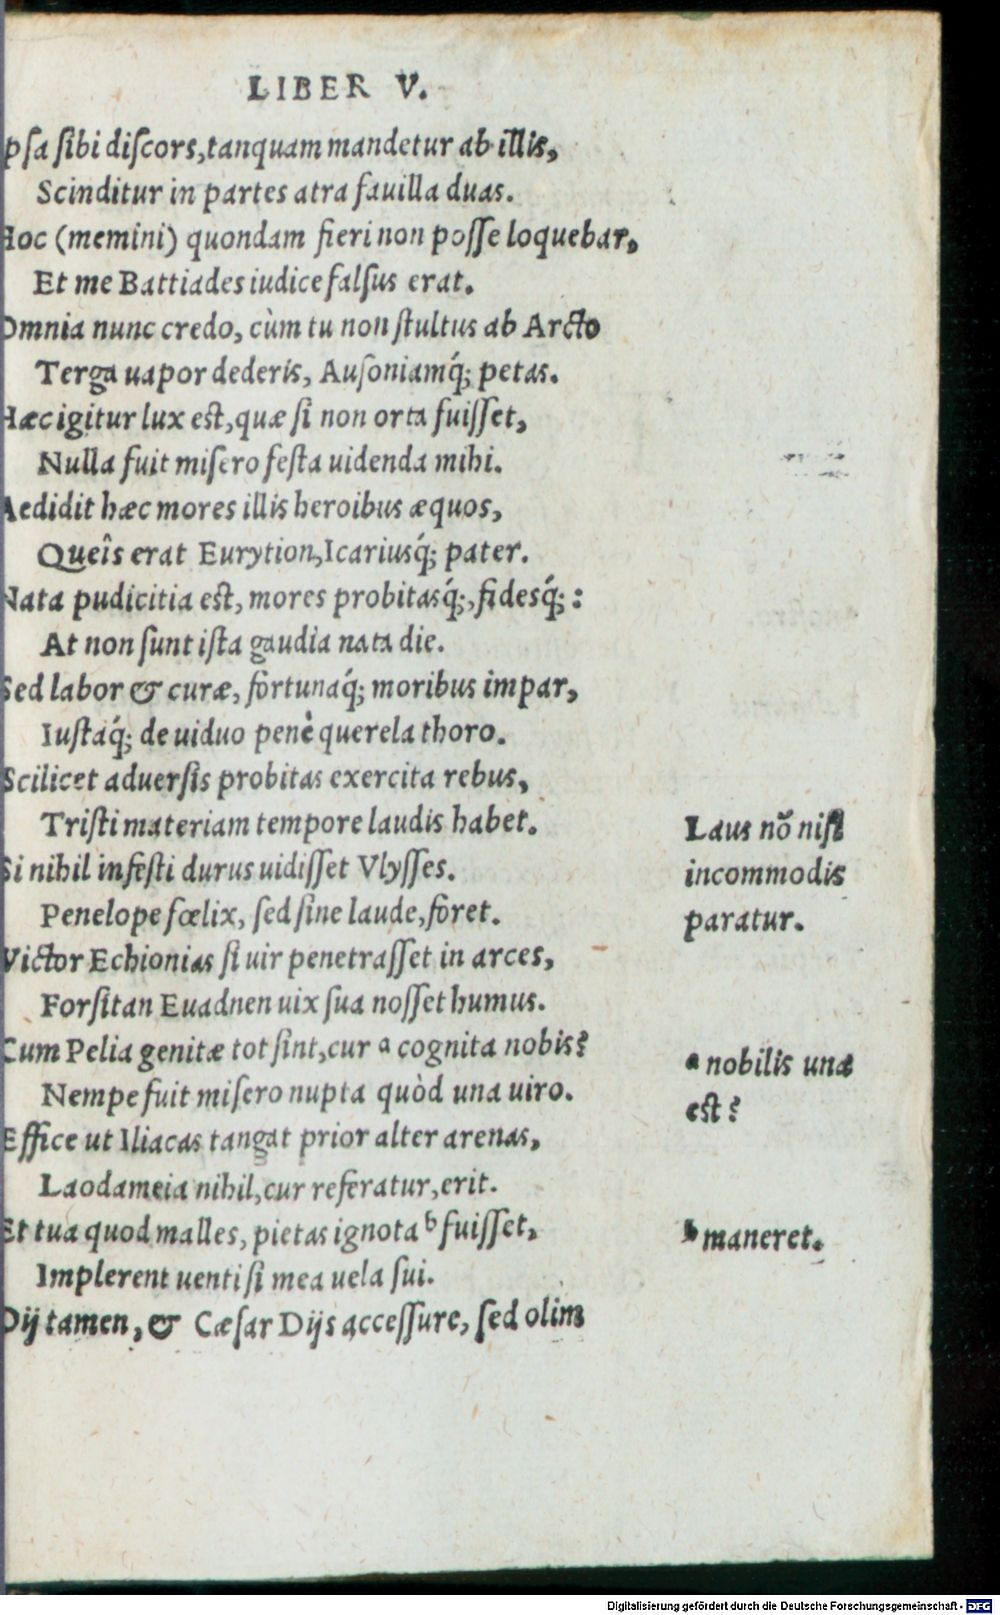 LIBER V.
pſa ſibi diſcors, tanquam mandetur ab illis,
Scinditur in partes atra fauilla duas.
Hoc (memini) quondam fieri non poſſe loquebar,
Et me Battiades iudice falſus erat.
Omnia nunc credo, cùm tu non ſtultus ab Arcto
Terga uapor dederis, Auſoniamq́; petas.
Hæc igitur lux est, quæ ſi non orta fuiſſet,
Nulla fuit miſero feſta uidenda mihi.
Aedidit hæc mores illis heroibus æquos,
Queîs erat Eurytion, Icariusq́; pater.
Nata pudicitia est, mores probitasq́;, fidesq́;:
At non ſunt iſta gaudia nata die.
Sed labor & curæ, fortunaq́; moribus impar,
Iuſtaq́; de uiduo penè querela thoro.
Scilicet aduerſis probitas exercita rebus,
Triſti materiam tempore laudis habet.
Si nihil infeſti durus uidiſſet Vlyſſes.
Penelope fœlix, ſed ſine laude, foret.
Victor Echionias ſi uir penetraſſet in arces,
Forſitan Euadnen uix ſua noſſet humus.
Cum Pelia genitæ tot ſint, cur a cognita nobis?
Nempe fuit miſero nupta quòd una uiro.
Effice ut Iliacas tangat prior alter arenas,
Laodameia nihil, cur referatur, erit.
Et tua quod malles, pietas ignota b fuiſſet,
Implerent uenti ſi mea uela ſui.
Dij tamen, & Cæſar Dijs acceſſure, ſed olim
Laus nõ niſi
incommodis
paratur.
a nobilis una
est?
b maneret.
Digitalisierung gefördert durch die Deutsche Forschungsgemeinschaft - DFG